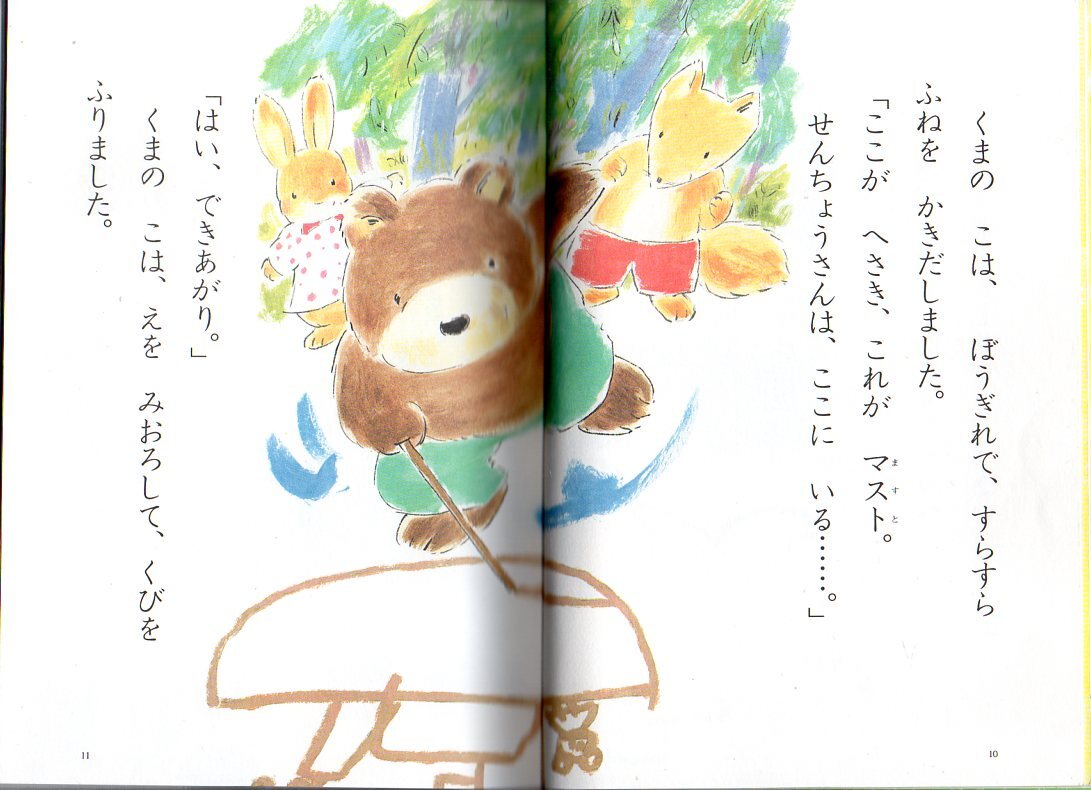 くまの こは、 ぼうぎれで、すらすら
ふねを かきだしました。
「ここが へさき、これが マスト。
ますと
せんちょうさんは、 ここに いる……。」
10
「はい、できあがり。」
くまの こは、えを みおろして、くびを
ふりました。
11